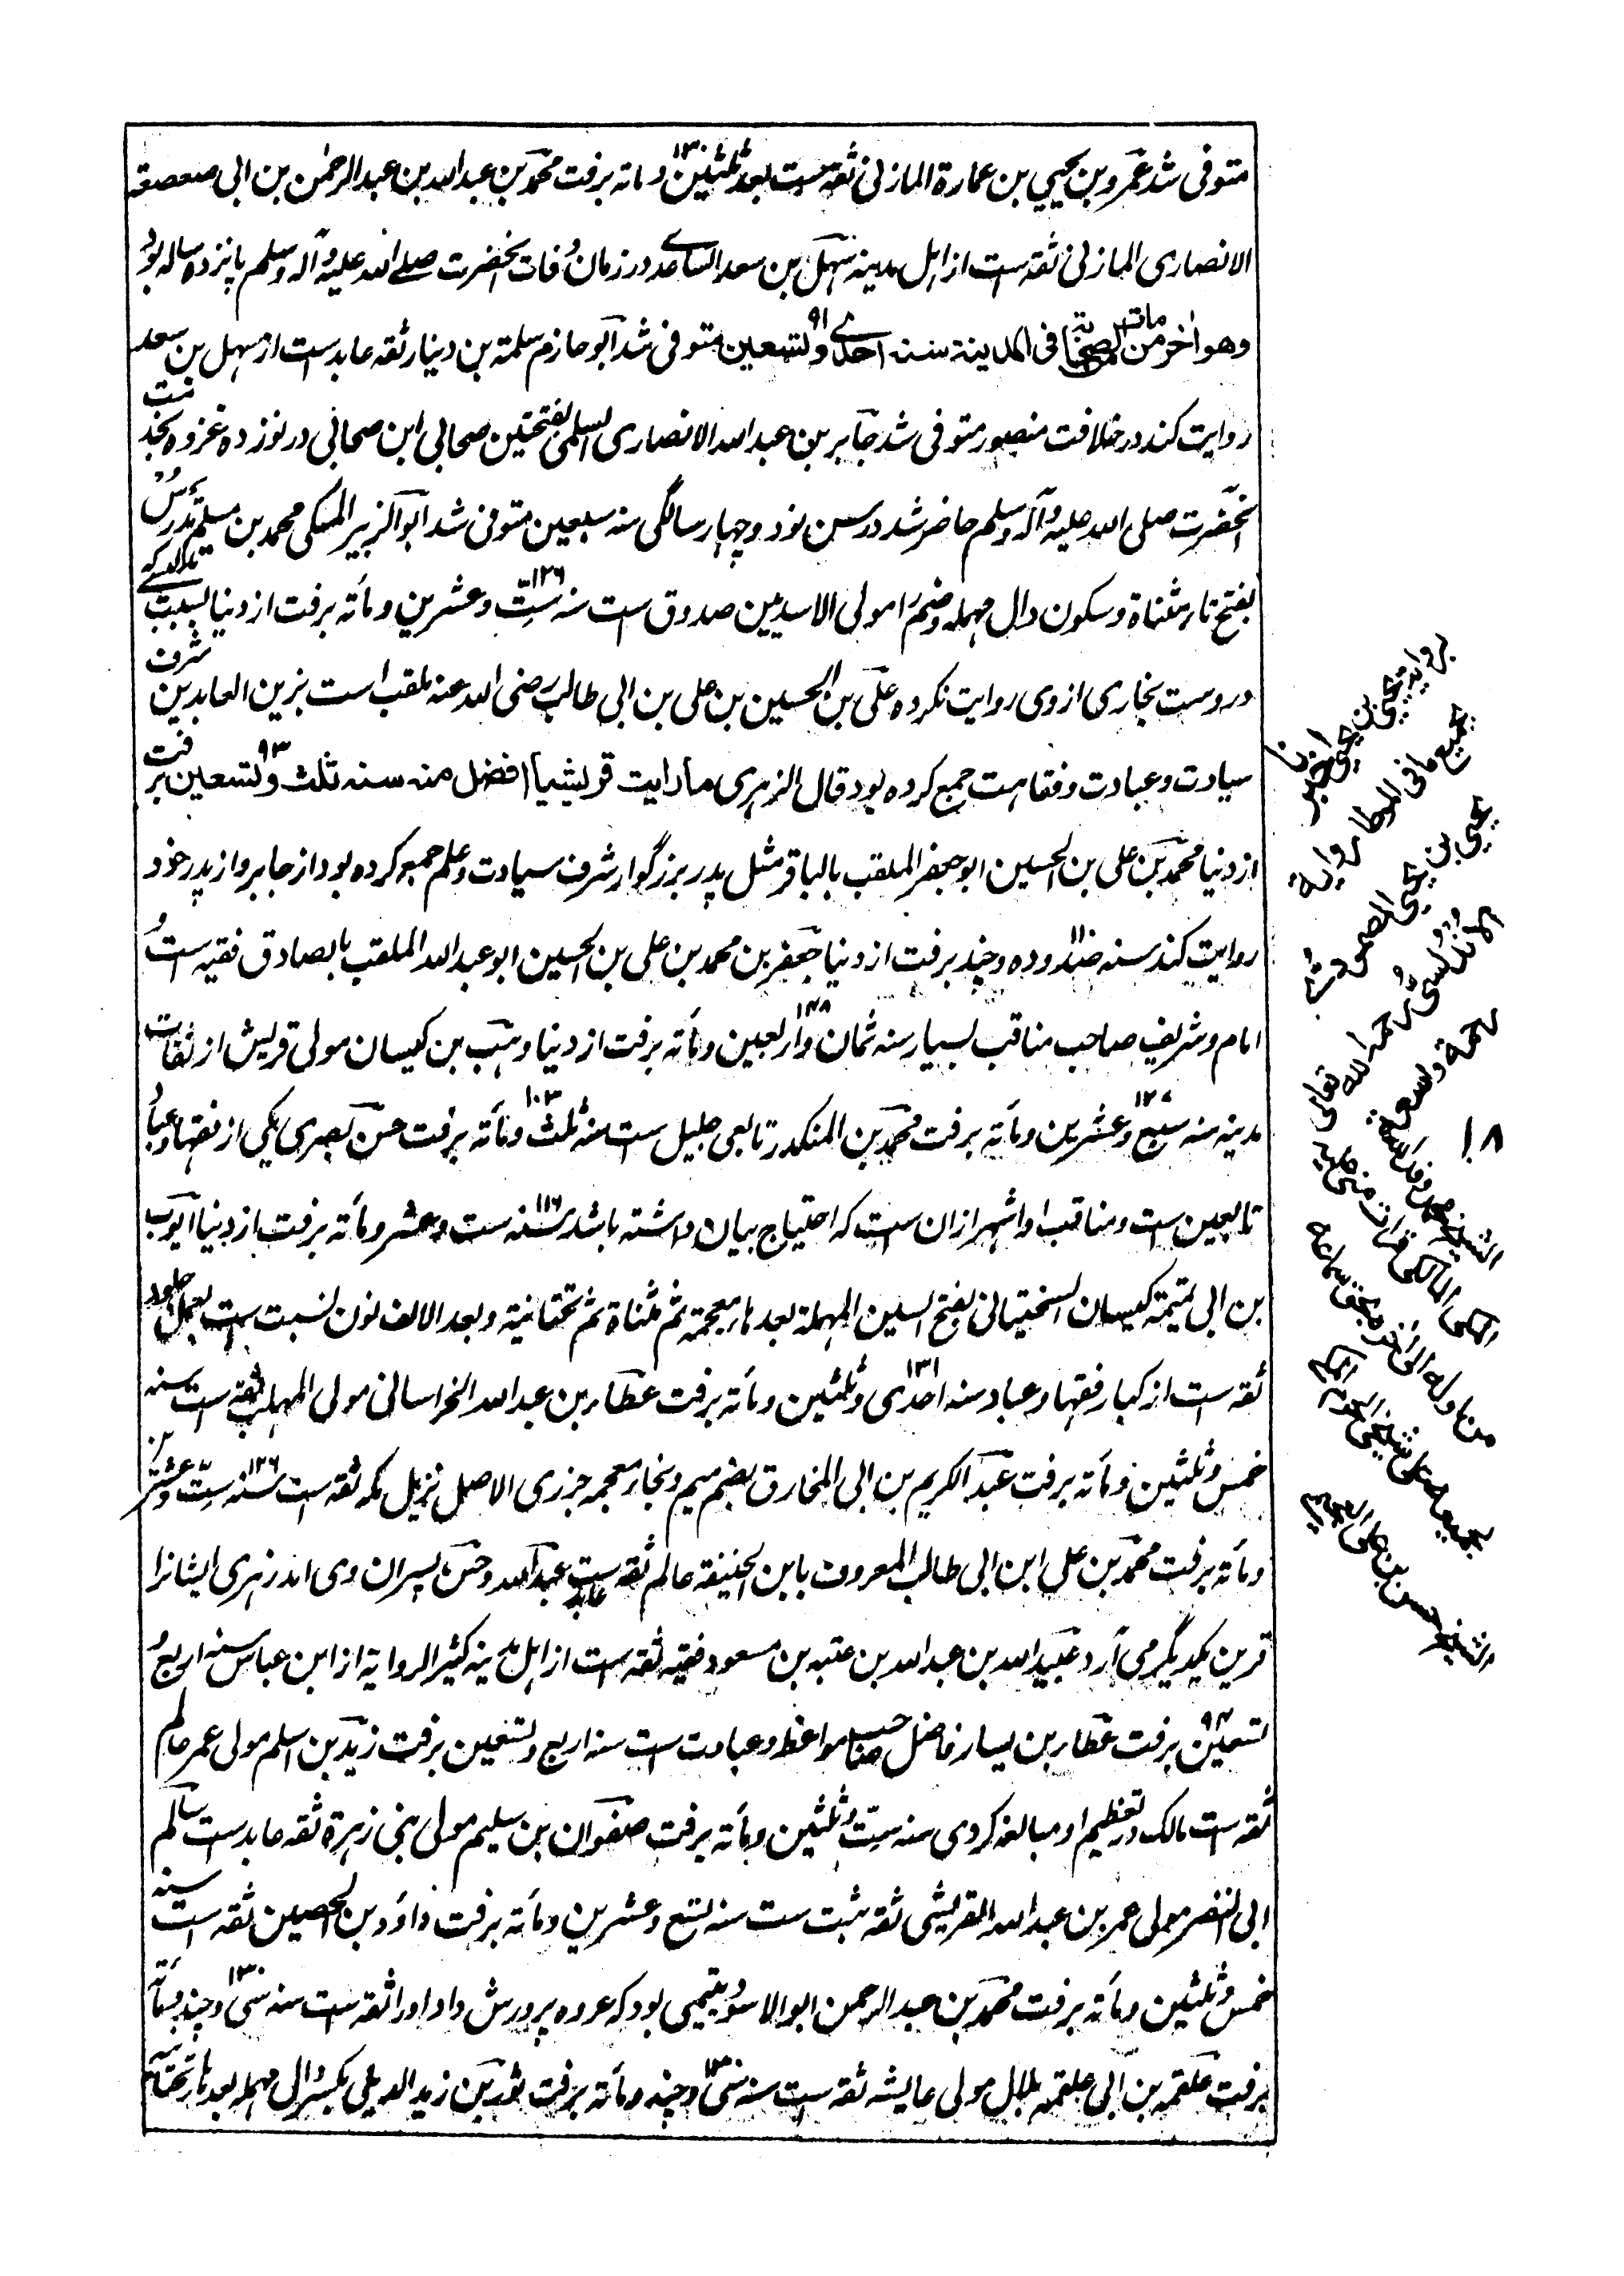 متوفی شد عمرو بن یحیی بن عمارة المازنی ثقه ست بعد ثلثین ۱۳۰ و مائه برفت محمد بن عبدالله بن عبدالرحمن بن ابی صعصعه
الانصاری المازنی ثقه ست از اهل مدینه سهل بن سعد الساعدی در زمان وفات آنحضرت صلے الله علیه و آله وسلم پانزده ساله بود
وهو آخر من مات من الصحابة فی المدینة سنة احدی ۹۱ وتسعین متوفی شد ابو حازم سلمة بن دینار ثقه عابد ست از سهل بن سعد
روایت کند در خلافت منصور متوفی شد جابر بن عبدالله الانصاری السلمی بفتحتین صحابی ابن صحابی در نوزده غزوه بخدمت
آنحضرت صلی الله علیه و آله وسلم حاضر شد در سن نود و چهار سالگی سنه سبعین متوفی شد ابو الزبیر المکی محمد بن مسلم تدرس
بفتح تاء مثناة و سکون دال مهمله و ضم را مولی الاسدیین صدوق ست سنه ۱۲۶ ستّ و عشرین و مأته برفت از دنیا بسبب تدلیسے که
در وست بخاری از وی روایت نکرده علی بن الحسین بن علی بن ابی طالب رضی الله عنه ملقب است بزین العابدین شرف
سیادت و عبادت و فقاهت جمع کرده بود قال الزهری ما رایت قریشیا افضل منه سنه ثلث ۹۳ وتسعین برفت
از دنیا محمد بن علی بن الحسین ابو جعفر الملقب بالباقر مثل پدر بزرگوار شرف سیادت و علم جمع کرده بود از جابر و از پدر خود
روایت کند سنه صد و ده و چند برفت از دنیا جعفر بن محمد بن علی بن الحسین ابو عبدالله الملقب بالصادق فقیه ست
امام و شریف صاحب مناقب بسیار سنه ثمان ۱۴۸ و اربعین و مأته برفت از دنیا وهب بن کیسان مولی قریش از ثقات
مدینه سنه سبع ۱۲۷ و عشرین و مأته برفت محمد بن المنکدر تابعی جلیل ست سنه ثلث ۱۰۳ و مأته برفت حسن بصری یکی از فقها و عباد
تابعین ست و مناقب او اشهر از ان ست که احتیاج بیان داشته باشد سنه ۱۱۶ ست و عشر و مأته برفت از دنیا ایوب
بن ابی تمیمة کیسان السختیانی بفتح السین المهملة بعدها معجمة ثم مثناة ثم تحتانیة و بعد الالف نون نسبت ست بعمل جلود
ثقه ست از کبار فقها و عباد سنه احدی ۱۳۱ و ثلثین و مأته برفت عطاء بن عبدالله الخراسانی مولی المهلب ثقه ست سنه
خمس و ثلثین و مأته برفت عبد الکریم بن ابی المخارق بضم میم و بخاء معجمه جزری الاصل نزیل مکه ثقه ست سنه ۱۲۶ ستّ و عشرین
و مأته برفت محمد بن علی ابن ابی طالب المعروف بابن الحنیفة عالم ثقه ست عابد عبدالله و حسن پسران وی اند زهری ایشانرا
قرین یکدیگر می آرد عبید الله بن عبدالله بن عتبه بن مسعود فقیه ثقه ست از اهل مدینه کثیر الروایة از ابن عباس سنه اربع و
تسعین ۹۴ برفت عطاء بن یسار فاضل صاحب مواعظ و عبادت ست سنه اربع و تسعین برفت زید بن اسلم مولی عمر عالم
ثقه ست مالک در تعظیم او مبالغه کردی سنه ستّ و ثلثین و مأته برفت صفوان بن سلیم مولی بنی زهرة ثقه عابد ست سالم
ابی النضر مولی عمر بن عبدالله القریشی ثقه ثبت ست سنه تسع و عشرین و مأته برفت داؤد بن الحصین ثقه ست سنه
خمس و ثلثین و مأته برفت محمد بن عبد الرحمن ابو الاسود یتیمی بود که عروه پرورش داد او را ثقه ست سنه سی ۱۳۰ و چند و مأته
برفت علقمه بن ابی علقمه بلال مولی عایشه ثقه ست سنه سی ۱۳۰ و چند و مأته برفت ثور بن زید الدیلی بکسر دال مهمله بعدها تحتانیه
بروایة یحیی بن یحیی اخبرنا
بجمیع ما فی الموطا روایة
یحیی بن یحیی المصمودی
الاندلسی رحمه الله تعالی
رحمة واسعة
الشیخ محمد وفد الله
المکی المالکی قراءة منی علیه
من اوله الی آخره بحق سماعه
لجمیعه علی شیخی الحرم المکی
الشیخ حسن بن علی العجیمی
۱۸